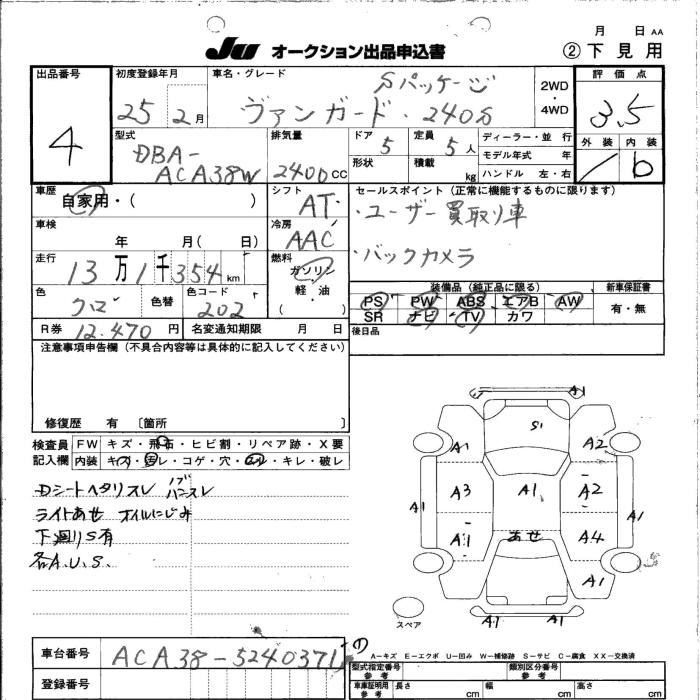 月 日 AA
JU オークション出品申込書 ② 下見用
出品番号 初度登録年月 車名・グレード 2WD 評価点
4 25 2月 Sパッケージ
ヴァンガード・240S 4WD 3.5
型式 排気量 ドア 定員 ディーラー・並 行 外装 内装
DBA- 5 5人 モデル年式 年 b
ACA38W 2400cc 形状 積載 kg ハンドル 左・右
車歴 シフト セールスポイント(正常に機能するものに限ります)
自家用・( ) AT ・ユーザー買取り車
車検 冷房
年 月( 日) AAC ・バックカメラ
走行 燃料
13万1千354km ガソリン 装備品(純正品に限る) 新車保証書
色 色替 色コード 軽・油 PS PW ABS エアB AW 有・無
クロ 202 ( ) SR ナビ TV カワ
R券 12.470円 名変通知期限 月 日 後日品
注意事項申告欄(不具合内容等は具体的に記入してください)
修復歴 有 〔箇所 〕
検査員 FW キズ・飛石・ヒビ割・リペア跡・X要
記入欄 内装 キズ・汚レ・コゲ・穴・キレ・破レ
Dシートヘタリスレ
ライトあせ オイルにじみ
下廻りS有
各A.U.S.
A1
S1
A1 A2
A3 A1 A2
A1 A1
A1 あせ A4
A1
スペア A1 A1
A-キズ E-エクボ U-凹み W-補修跡 S-サビ C-腐食 XX-交換済
車台番号 ACA38-5240371
型式指定番号 参考 類別区分番号 参考
登録番号 車庫証明用 参考 長さ cm 幅 cm 高さ cm